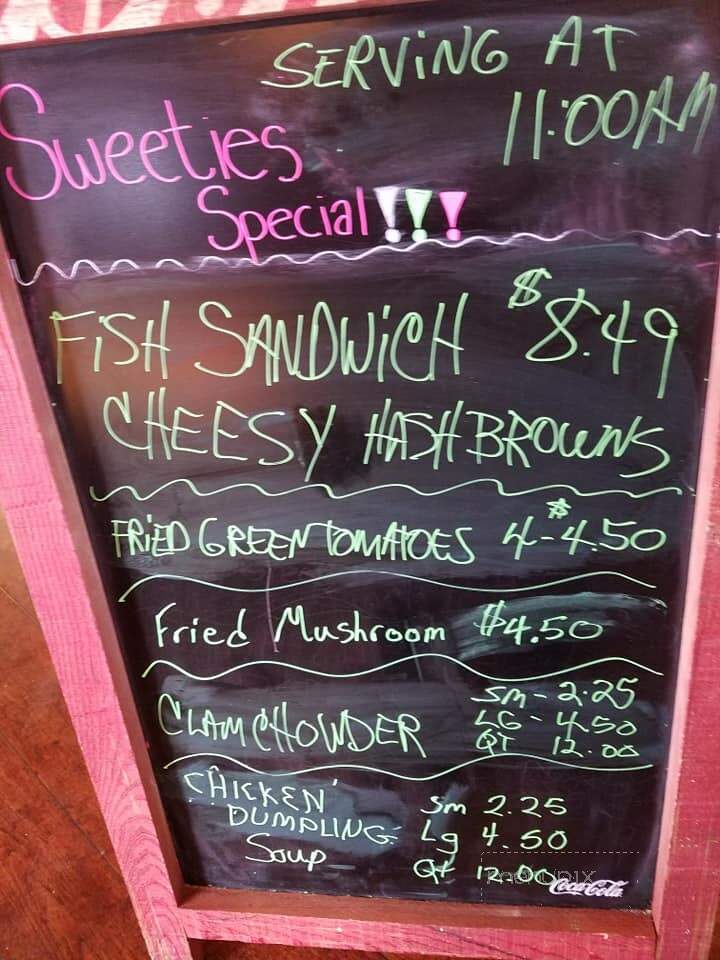 SERVING AT
11:00AM
Sweeties
Special!!!
FISH SANDWICH $8.49
CHEESY HASHBROWNS
FRIED GREEN TOMATOES 4-$4.50
Fried Mushroom $4.50
CLAM CHOWDER
SM - 2.25
LG - 4.50
QT 12.00
CHICKEN
DUMPLING
Soup
Sm 2.25
Lg 4.50
Qt 12.00
Coca-Cola